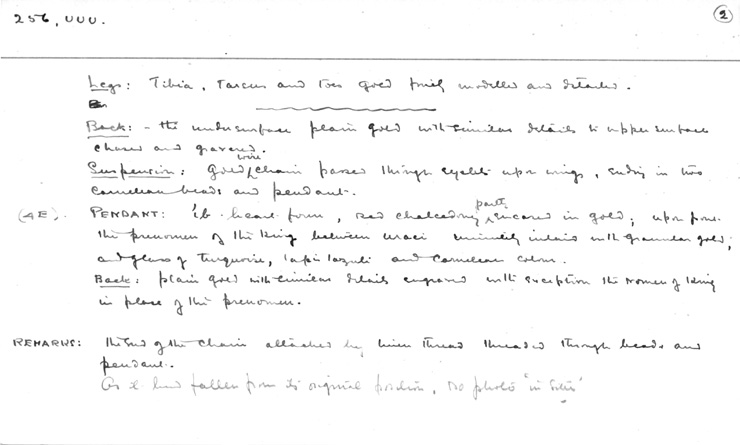 256,UUU.
2
Legs: Tibia, Tarsus and Toes gold finely modelled and detailed.
Back: - the undersurface plain gold with similar details to upper surface
chased and graved.
Suspension: gold wire chain passed through eyelets upon wings, ending in two
carnelian beads and pendant.
(4E). PENDANT: 'ib. heart form, red chalcedony partly encased in gold; upon front
the prenomen of the king between uraei minutely inlaid with granular gold,
and glass of turquoise, lapis lazuli and carnelian colour.
Back: plain gold with similar details engraved with exception the nomen of king
in place of the prenomen.
REMARKS: the end of the chain attached by linen thread threaded through beads and
pendant.
As it had fallen from its original position, no photo "in situ"